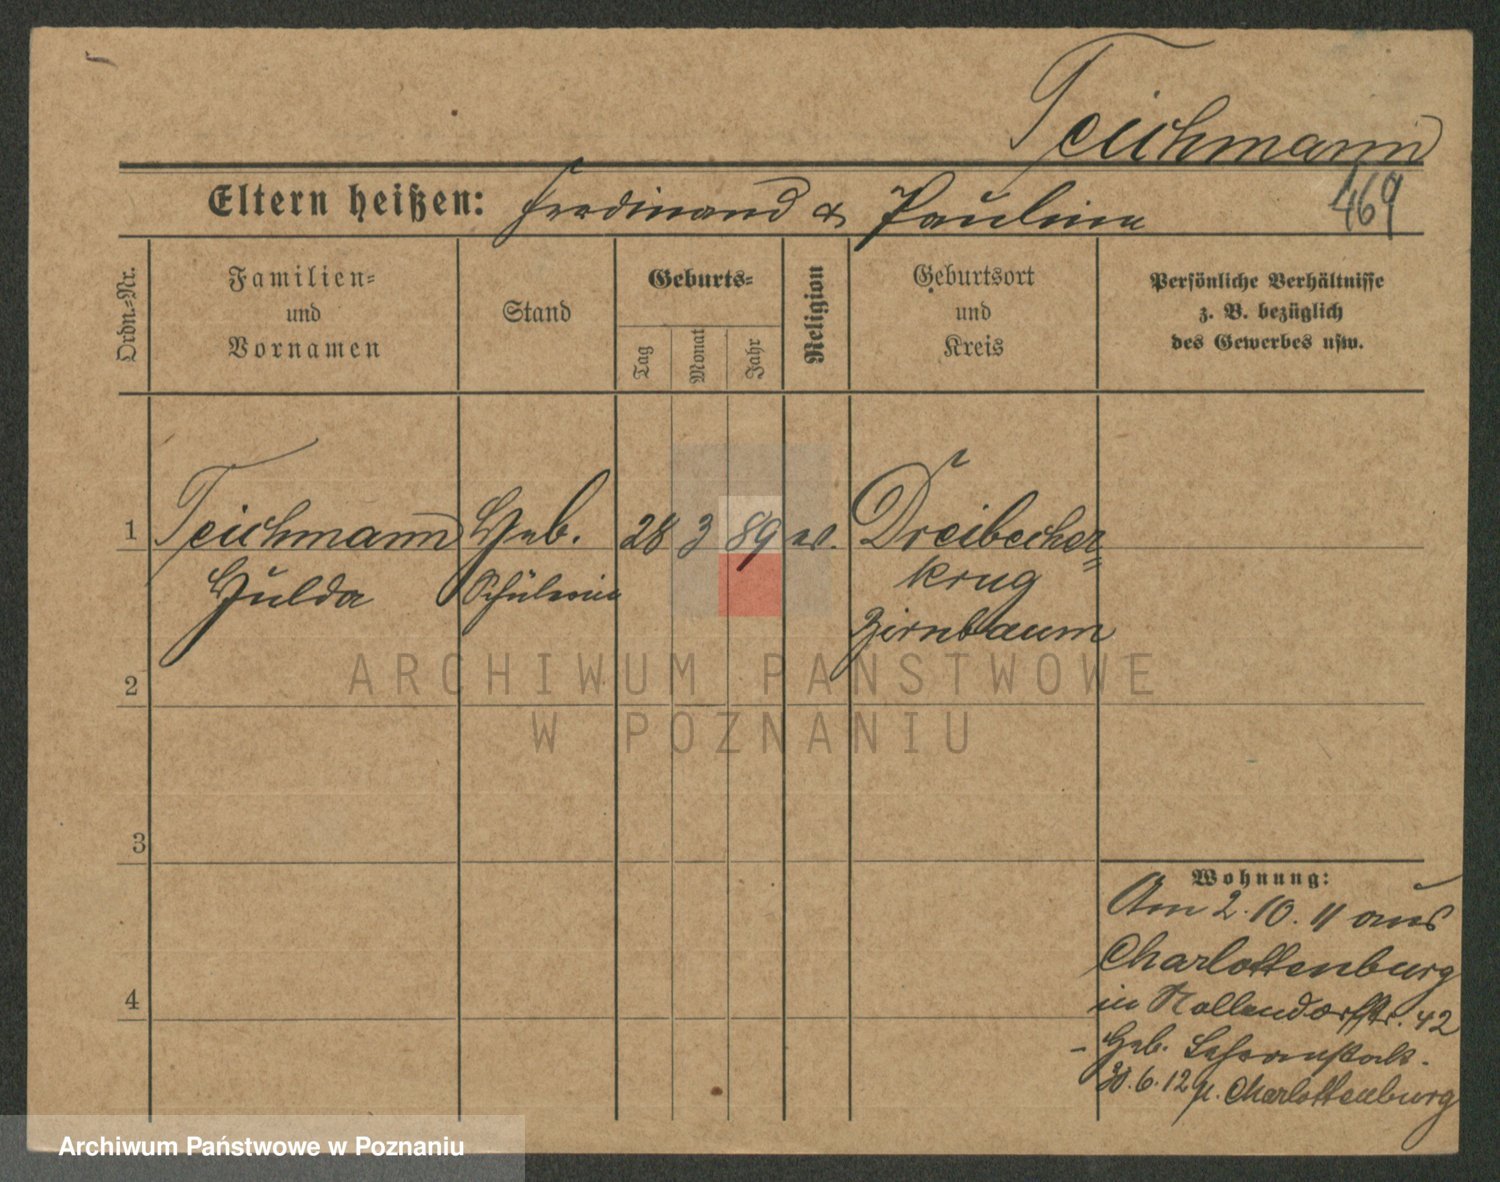 Teichmann
469
Eltern heißen: Ferdinand & Pauline
Ordn.=Nr.
Familien=
und
Vornamen
Stand
Geburts=
Tag
Monat
Jahr
Religion
Geburtsort
und
Kreis
Persönliche Verhältnisse
z. B. bezüglich
des Gewerbes usw.
1 Teichmann Heb. 28 3 89 ev. Dreibecher=
Hulda Schülerin krug
Birnbaum
2
3
4
Wohnung:
Am 2.10.11 aus
Charlottenburg
in Nollendorfstr. 42
- Heb. Lehranstalt.
6.12 n. Charlottenburg
ARCHIWUM PAŃSTWOWE
W POZNANIU
Archiwum Państwowe w Poznaniu